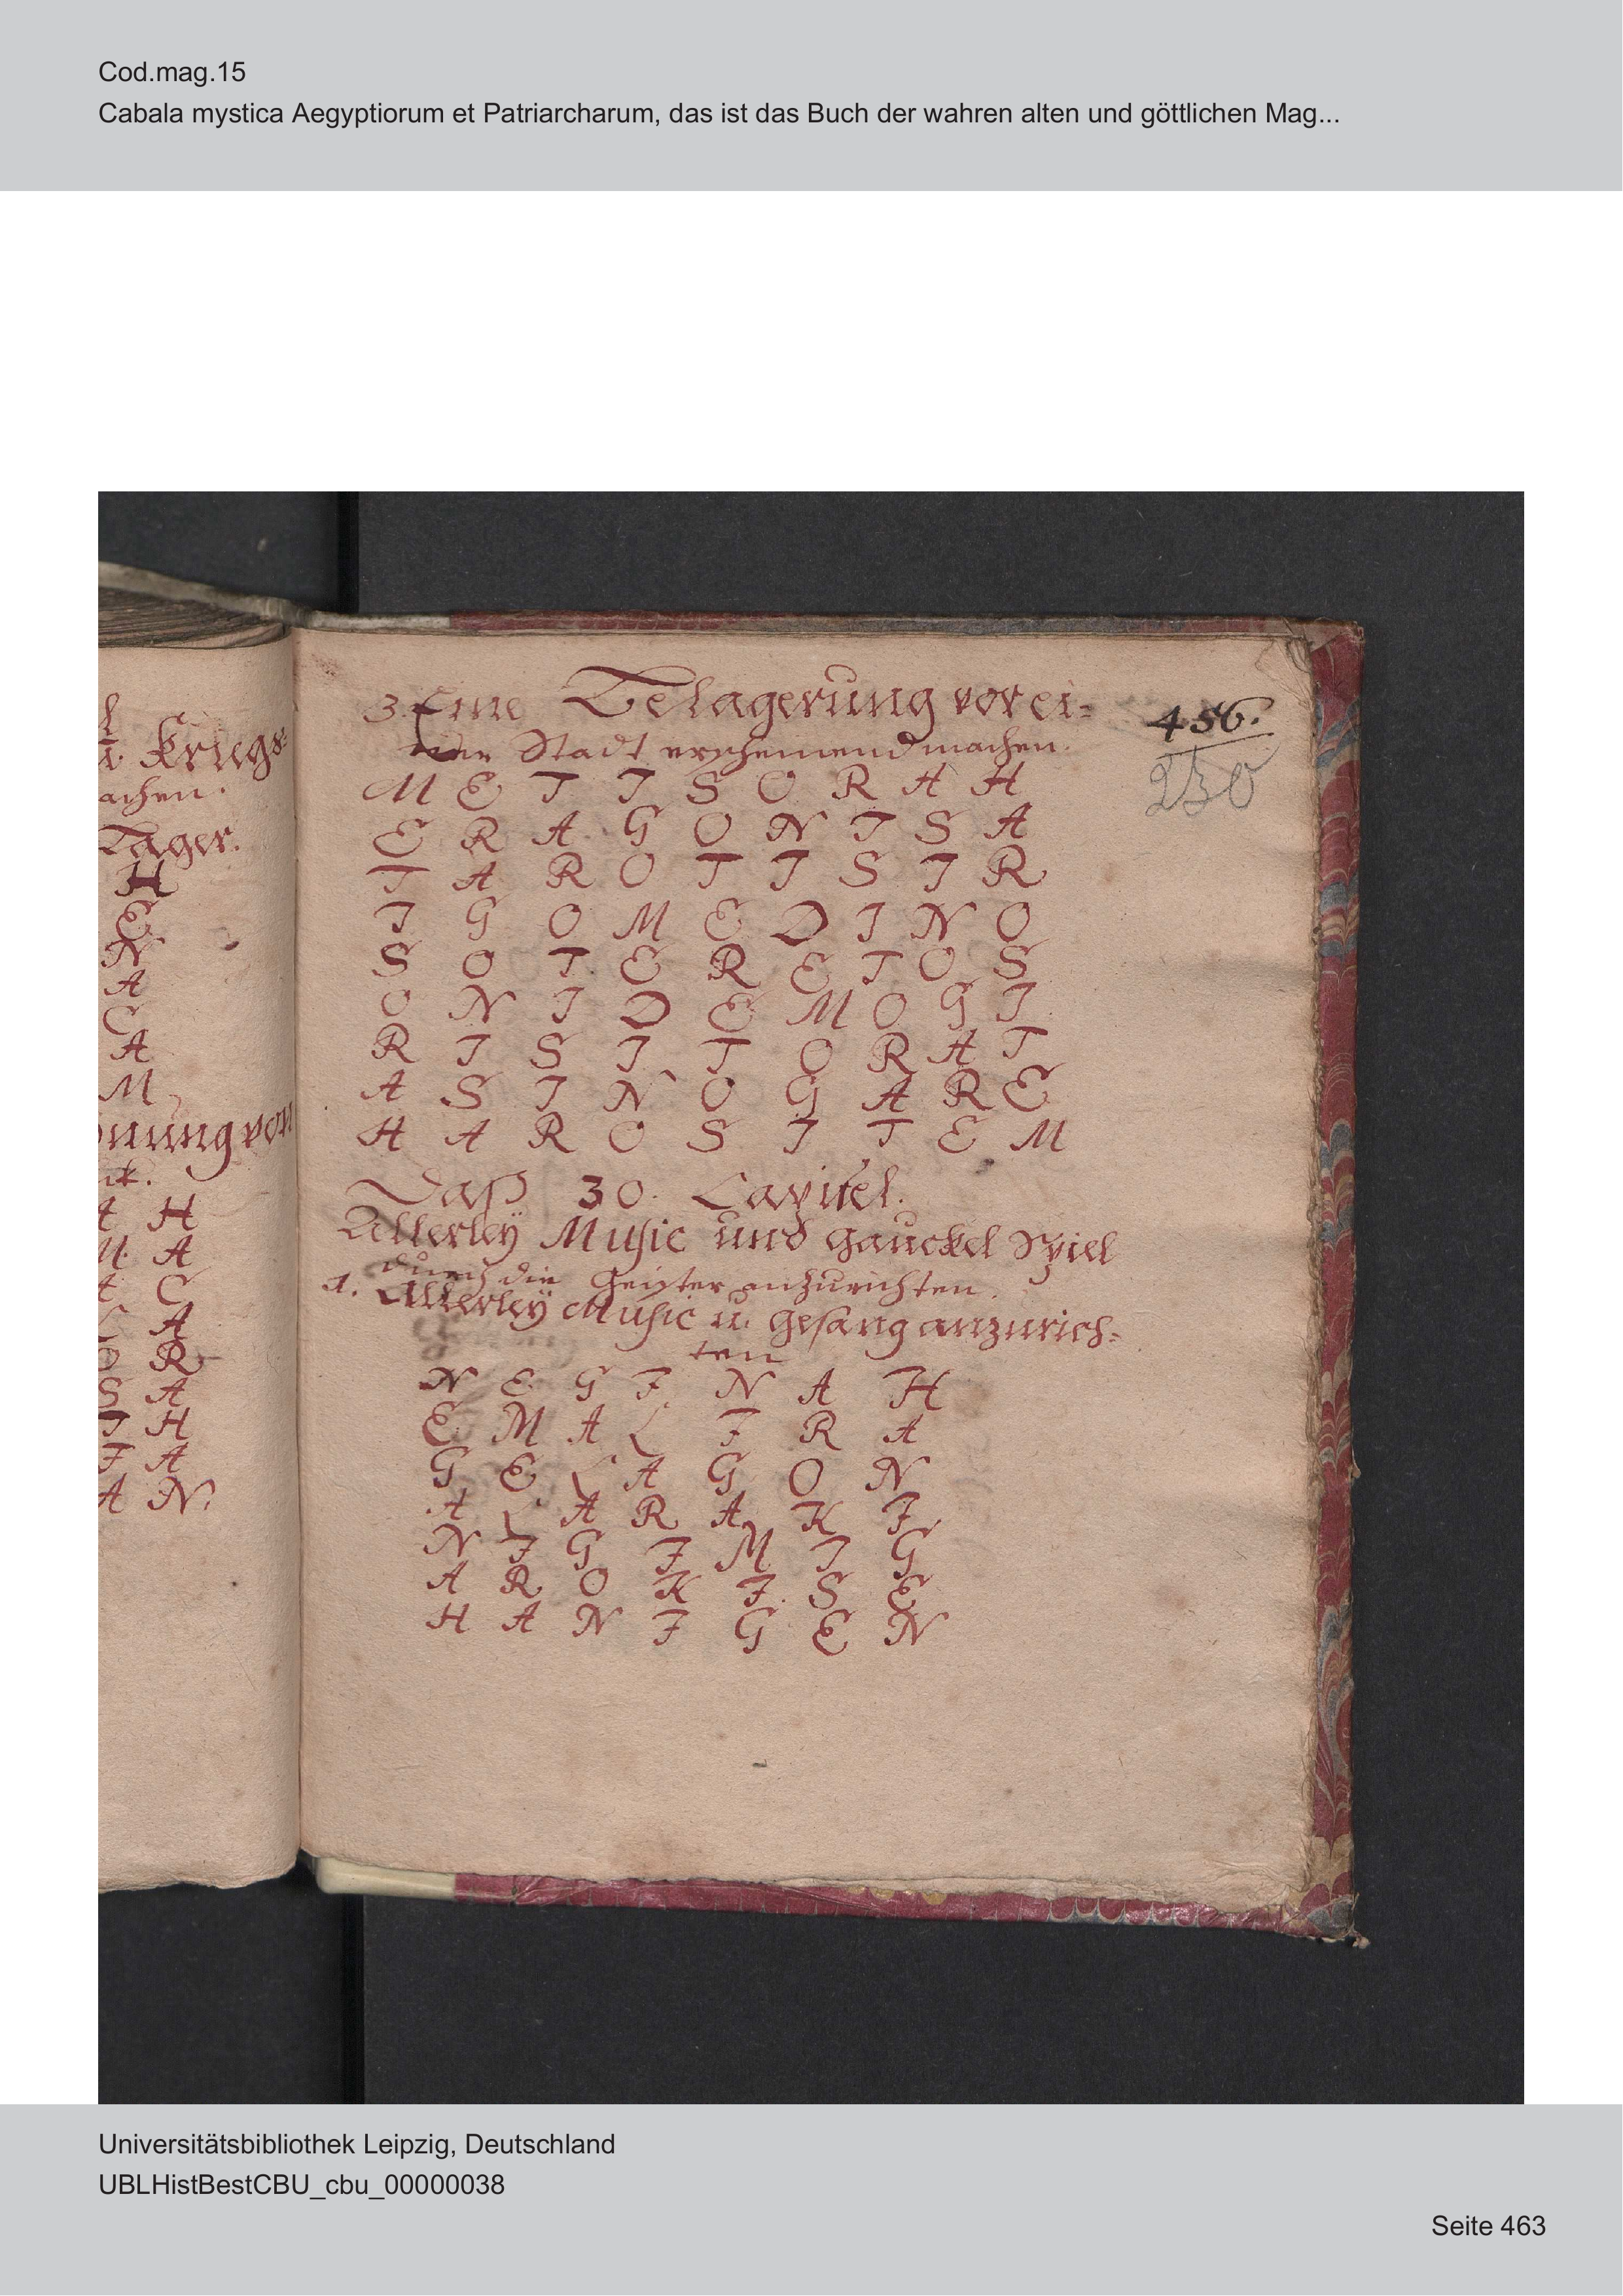 Cod.mag.15
Cabala mystica Aegyptiorum et Patriarcharum, das ist das Buch der wahren alten und göttlichen Mag...
l
u. Kriegs-
achen.
Lager.
H
E
N
A
C
A
M
nungvon
A H
M. A
A C
L A
O R
S A
I H
F A
A N.
456.
230
3. Eine Belagerung vor ei-
ner Stadt erscheinend machen.
M E T I S O R A H
E R A G O N I S A
T A R O T I S I R
I G O M E D I N O
S O T E R E T O S
O N I D E M O G I
R I S I T O R A T
A S I N O G A R E
H A R O S I T E M
Daß 30. Capitel.
Allerleÿ Music und gauckel Spiel
durch die Geister anzurichten.
1. Allerleÿ Music u. gesang anzurich-
ten
N E G I N A H
E M A L I R A
G E L A G O N
A L A R A K I
N I G I M I G
A R O K I S E
H A N I G E N
Universitätsbibliothek Leipzig, Deutschland
UBLHistBestCBU_cbu_00000038
Seite 463